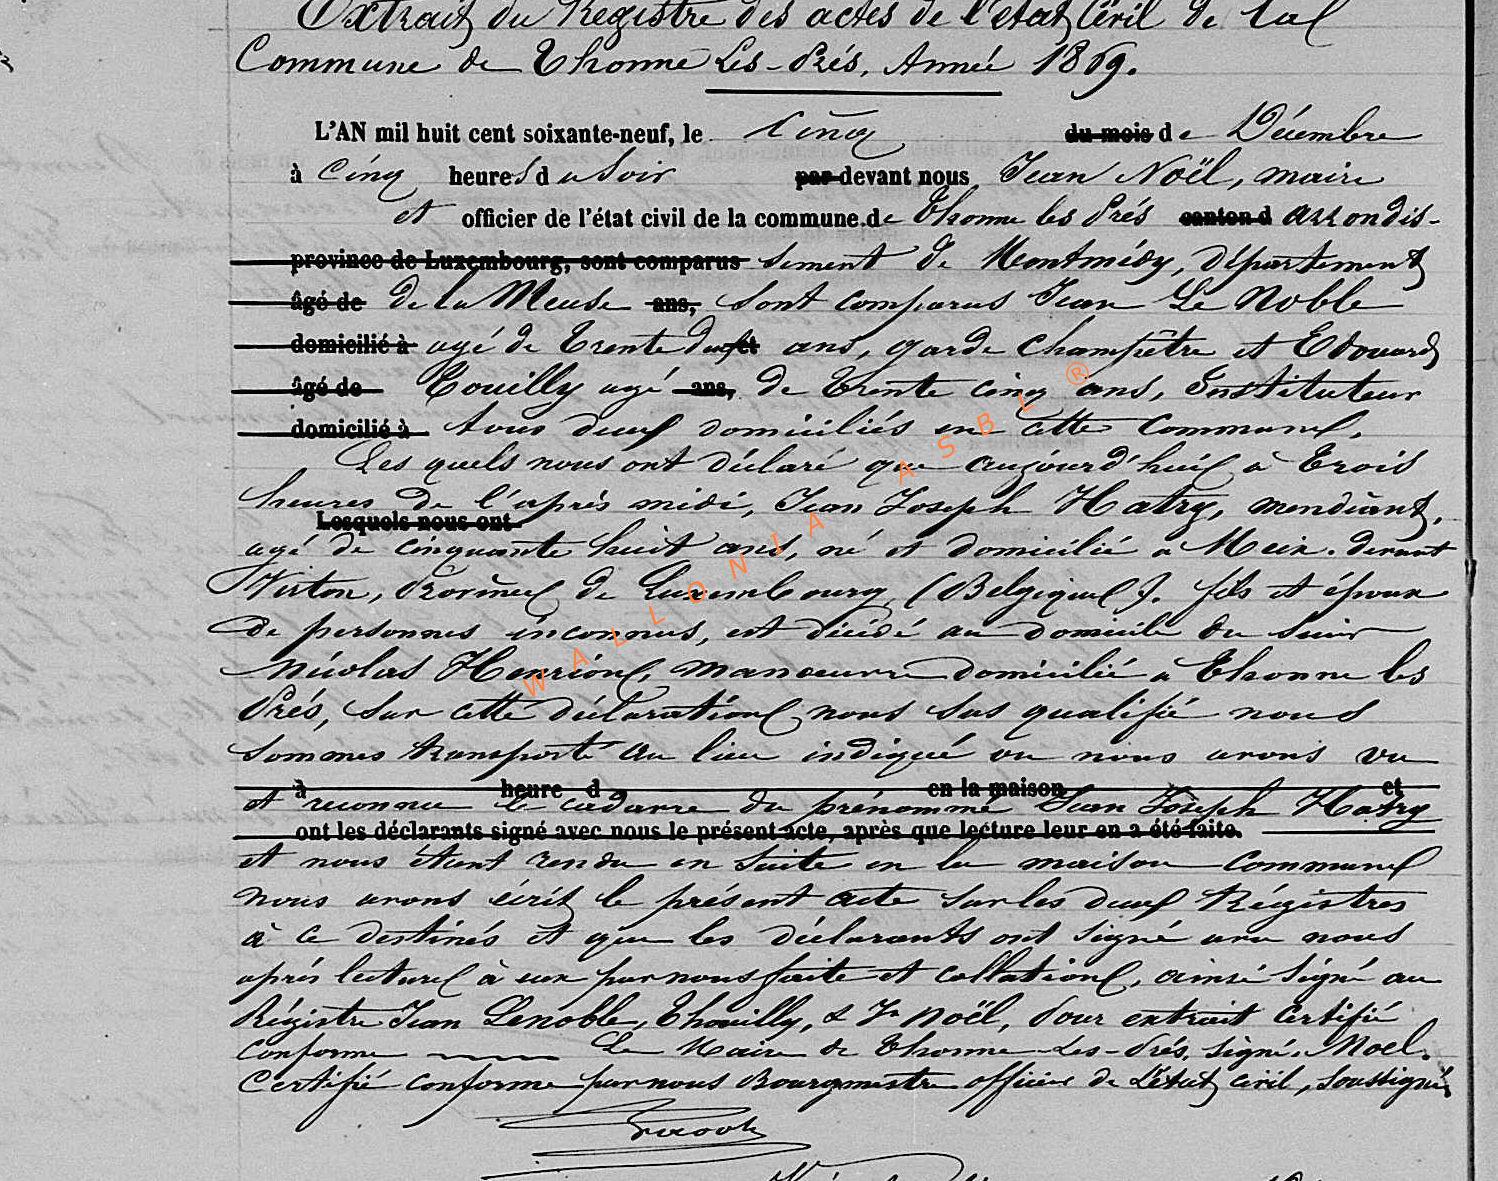 Extrait du Registre des actes de l'état Civil de la
Commune de Thonne Les-Prés, Année 1869.
L'AN mil huit cent soixante-neuf, le Cinq du mois de Décembre
à cinq heures du Soir par-devant nous Jean Noël, maire
et officier de l'état civil de la commune de Thonne les Prés canton d arrondis-
province de Luxembourg, sont comparus sement de Montmédy, département
âgé de de la Meuse ans, sont comparus Jean Le Noble
domicilié à agé de Trente deux et ans, garde Champêtre et Edouard
âgé de Touilly agé ans, de Trente cinq ans, Instituteur
domicilié à tous deux domiciliés en cette Commune.
Les quels nous ont déclaré que aujourd'hui à Trois
heures de l'après midi, Jean Joseph Hatry, mendiant,
Lesquels nous ont
agé de cinquante huit ans, né et domicilié à Meix. devant
Virton, Province de Luxembourg, (Belgique). fils et époux
de personnes inconnues, est décédé au domicile du sieur
Nicolas Henrion, manœuvre domicilié à Thonne les
Prés, Sur cette déclaration nous sus qualifié nous
sommes transporté au lieu indiqué ou nous avons vu
à heure d en la maison et
et reconnu le cadavre du prénommé Jean Joseph Hatry
ont les déclarants signé avec nous le présent acte, après que lecture leur en a été faite.
et nous étant rendu en suite en la maison Commune
nous avons écrit le présent acte sur les deux Régistres
à ce destinés et que les déclarants ont signé avec nous
après lecture à eux par nous faite et collation, ainsi signé au
Régistre Jean Lenoble, Thouilly, & Jn Noël, Pour extrait Certifié
conforme Le Maire de Thonne-Les-Prés, signé. Noel.
Certifié conforme par nous Bourgmestre officier de L'état civil, soussigné
WALLONIA ASBL ®